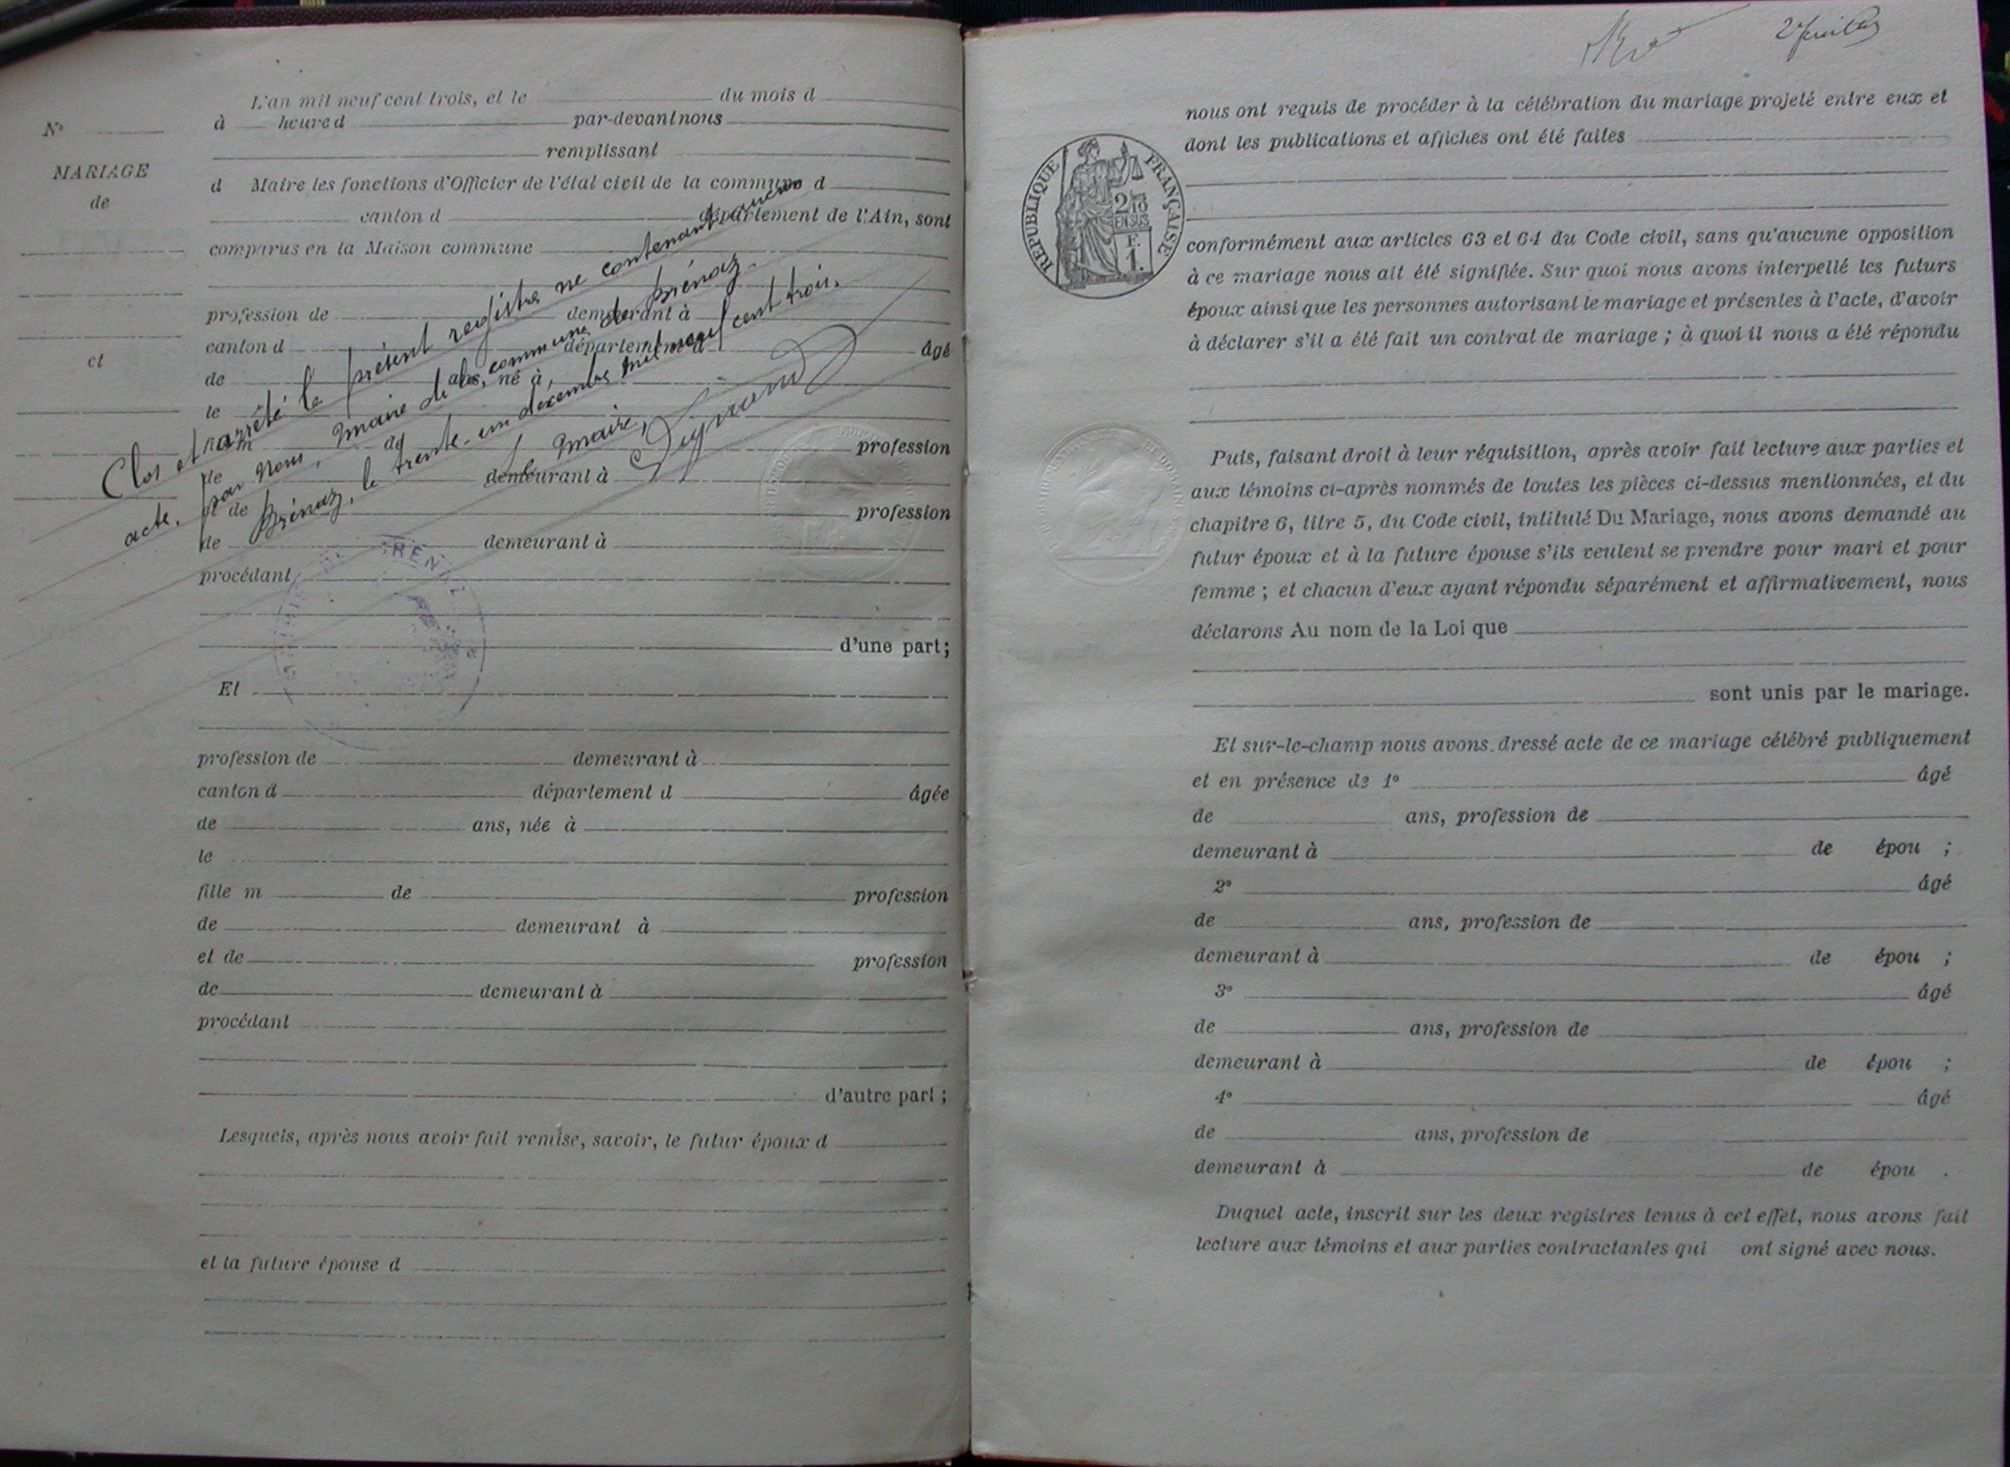 L'an mil neuf cent trois, et le du mois d
à heure d par-devant nous
remplissant
d Maire les fonctions d'Officier de l'état civil de la commune d
canton d département de l'Ain, sont
comparus en la Maison commune
profession de demeurant à
canton d département d âgé
de ans, né à,
le
m de
profession
de demeurant à
et de profession
de demeurant à
procédant
d'une part;
Et
profession de demeurant à
canton d département d âgée
de ans, née à
le
fille m de profession
de demeurant à
et de profession
de demeurant à
procédant
d'autre part ;
Lesquels, après nous avoir fait remise, savoir, le futur époux d
et la future épouse d
N°
MARIAGE
de
et
Clos et arrêté le présent registre ne contenant aucun
acte, par nous, maire de la commune de Brénaz.
Brénaz, le trente-un décembre mil neuf cent trois.
Le maire,
BRENAZ
2e feuillet
nous ont requis de procéder à la célébration du mariage projeté entre eux et
dont les publications et affiches ont été faites
RÉPUBLIQUE FRANÇAISE
2/10
EN SUS
F.
1.
conformément aux articles 63 et 64 du Code civil, sans qu'aucune opposition
à ce mariage nous ait été signifiée. Sur quoi nous avons interpellé les futurs
époux ainsi que les personnes autorisant le mariage et présentes à l'acte, d'avoir
à déclarer s'il a été fait un contrat de mariage ; à quoi il nous a été répondu
Puis, faisant droit à leur réquisition, après avoir fait lecture aux parties et
aux témoins ci-après nommés de toutes les pièces ci-dessus mentionnées, et du
chapitre 6, titre 5, du Code civil, intitulé Du Mariage, nous avons demandé au
futur époux et à la future épouse s'ils veulent se prendre pour mari et pour
femme ; et chacun d'eux ayant répondu séparément et affirmativement, nous
déclarons Au nom de la Loi que
sont unis par le mariage.
Et sur-le-champ nous avons dressé acte de ce mariage célébré publiquement
et en présence de 1° âgé
de ans, profession de
demeurant à de épou ;
2° âgé
de ans, profession de
demeurant à de épou ;
3° âgé
de ans, profession de
demeurant à de épou ;
4° âgé
de ans, profession de
demeurant à de épou .
Duquel acte, inscrit sur les deux registres tenus à cet effet, nous avons fait
lecture aux témoins et aux parties contractantes qui ont signé avec nous.